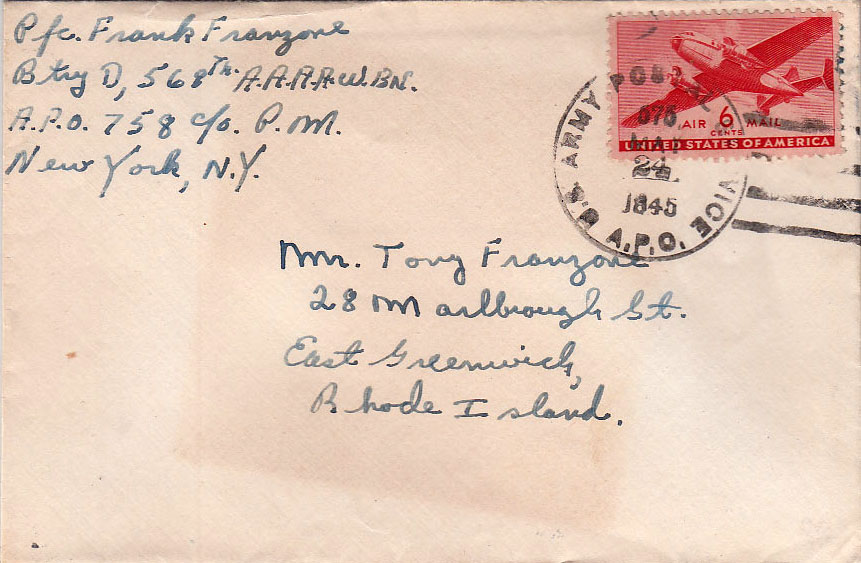 Pfc. Frank Franzone
Btry D, 568th A.A.A.A.W. BN.
A.P.O. 758 c/o. P.M.
New York, N.Y.
AIR 6 MAIL
CENTS
UNITED STATES OF AMERICA
ARMY POSTAL
MAY
24
1945
A.P.O.
Mr. Tony Franzone
28 Marlbrough St.
East Greenwich,
Rhode Island.